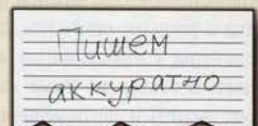 Пишем
аккуратно